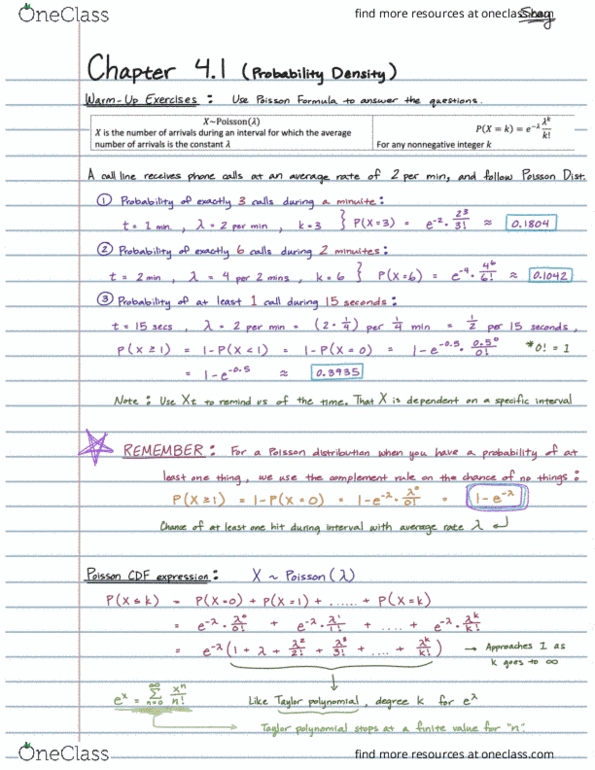 OneClass
find more resources at oneclass.com
Chapter 4.1 (Probability Density)
Warm-Up Exercises : Use Poisson Formula to answer the questions.
X~Poisson(λ)
X is the number of arrivals during an interval for which the average
number of arrivals is the constant λ
P(X = k) = e^-λ λ^k/k!
For any nonnegative integer k
A call line receives phone calls at an average rate of 2 per min, and follow Poisson Dist.
① Probability of exactly 3 calls during a minuite :
t = 1 min. , λ = 2 per min , k = 3 } P(X=3) = e^-2 · 2^3/3! ≈ 0.1804
② Probability of exactly 6 calls during 2 minuites :
t = 2 min , λ = 4 per 2 mins , k = 6 } P(X=6) = e^-4 · 4^6/6! ≈ 0.1042
③ Probability of at least 1 call during 15 seconds :
t = 15 secs , λ = 2 per min = (2 · 1/4) per 1/4 min = 1/2 per 15 seconds ,
P(X ≥ 1) = 1 - P(X < 1) = 1 - P(X = 0) = 1 - e^-0.5 · 0.5^0/0! *0! = 1
= 1 - e^-0.5 ≈ 0.3935
Note : Use Xt to remind us of the time. That X is dependent on a specific interval
REMEMBER : For a Poisson distribution when you have a probability of at
least one thing , we use the complement rule on the chance of no things :
P(X ≥ 1) = 1 - P(X = 0) = 1 - e^-λ · λ^0/0! = 1 - e^-λ
Chance of at least one hit during interval with average rate λ ↵
Poisson CDF expression : X ~ Poisson(λ)
P(X ≤ k) = P(X=0) + P(X=1) + ...... + P(X=k)
= e^-λ · λ^0/0! + e^-λ · λ^1/1! + .... + e^-λ · λ^k/k!
= e^-λ (1 + λ + λ^2/2! + λ^3/3! + .... + λ^k/k!) → Approaches 1 as
k goes to ∞
e^x = ∞ Σ n=0 x^n/n! Like Taylor polynomial , degree k for e^λ
Taylor polynomial stops at a finite value for "n".
OneClass
find more resources at oneclass.com